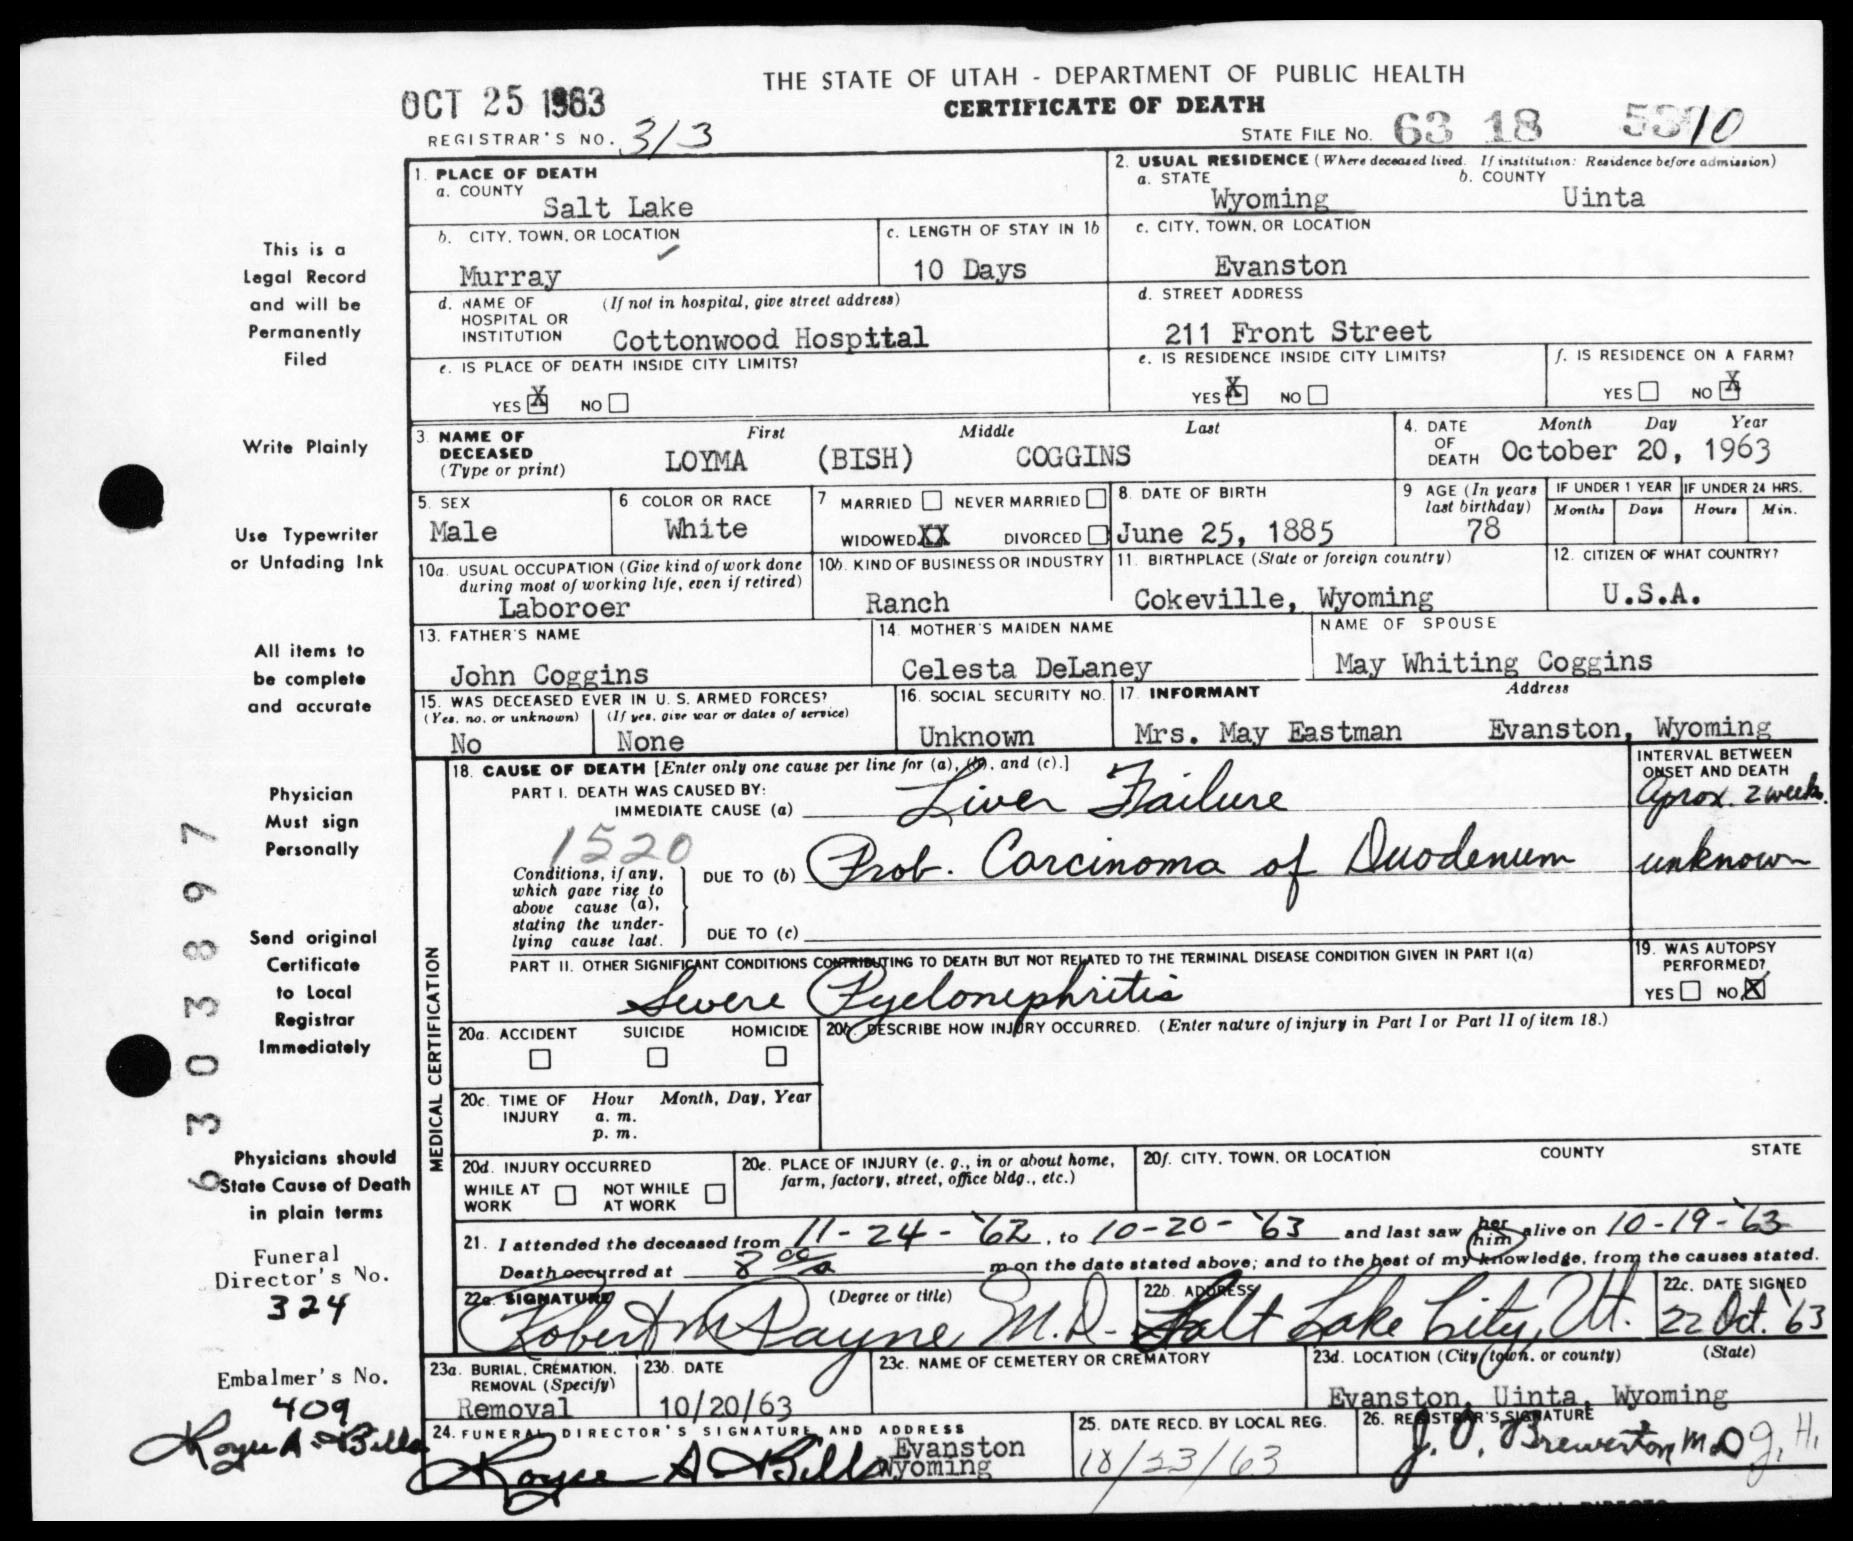 THE STATE OF UTAH - DEPARTMENT OF PUBLIC HEALTH
OCT 25 1963
CERTIFICATE OF DEATH
REGISTRAR'S NO. 313
STATE FILE NO. 63 18 5310
1. PLACE OF DEATH
a. COUNTY
Salt Lake
2. USUAL RESIDENCE (Where deceased lived. If institution: Residence before admission)
a. STATE b. COUNTY
Wyoming Uinta
b. CITY, TOWN, OR LOCATION
Murray
c. LENGTH OF STAY IN 1b
10 Days
c. CITY, TOWN, OR LOCATION
Evanston
d. NAME OF HOSPITAL OR INSTITUTION (If not in hospital, give street address)
Cottonwood Hospital
d. STREET ADDRESS
211 Front Street
e. IS PLACE OF DEATH INSIDE CITY LIMITS?
YES X NO
e. IS RESIDENCE INSIDE CITY LIMITS?
YES X NO
f. IS RESIDENCE ON A FARM?
YES NO X
3. NAME OF DECEASED (Type or print)
First Middle Last
LOYMA (BISH) COGGINS
4. DATE OF DEATH
Month Day Year
October 20, 1963
5. SEX
Male
6. COLOR OR RACE
White
7 MARRIED NEVER MARRIED
WIDOWED XX DIVORCED
8. DATE OF BIRTH
June 25, 1885
9 AGE (In years last birthday)
78
IF UNDER 1 YEAR
Months Days
IF UNDER 24 HRS.
Hours Min.
10a. USUAL OCCUPATION (Give kind of work done during most of working life, even if retired)
Laboroer
10b. KIND OF BUSINESS OR INDUSTRY
Ranch
11. BIRTHPLACE (State or foreign country)
Cokeville, Wyoming
12. CITIZEN OF WHAT COUNTRY?
U.S.A.
13. FATHER'S NAME
John Coggins
14. MOTHER'S MAIDEN NAME
Celesta DeLaney
NAME OF SPOUSE
May Whiting Coggins
15. WAS DECEASED EVER IN U. S. ARMED FORCES?
(Yes, no, or unknown) (If yes, give war or dates of service)
No None
16. SOCIAL SECURITY NO.
Unknown
17. INFORMANT Address
Mrs. May Eastman Evanston, Wyoming
MEDICAL CERTIFICATION
18. CAUSE OF DEATH [Enter only one cause per line for (a), (b), and (c).]
INTERVAL BETWEEN ONSET AND DEATH
PART I. DEATH WAS CAUSED BY:
IMMEDIATE CAUSE (a) Liver Failure
Aprox. 2 weeks.
1520
Conditions, if any, which gave rise to above cause (a), stating the underlying cause last.
DUE TO (b) Prob. Carcinoma of Duodenum
unknown
DUE TO (c)
PART II. OTHER SIGNIFICANT CONDITIONS CONTRIBUTING TO DEATH BUT NOT RELATED TO THE TERMINAL DISEASE CONDITION GIVEN IN PART I(a)
Severe Pyelonephritis
19. WAS AUTOPSY PERFORMED?
YES NO X
20a. ACCIDENT SUICIDE HOMICIDE
20b. DESCRIBE HOW INJURY OCCURRED. (Enter nature of injury in Part I or Part II of item 18.)
20c. TIME OF INJURY Hour a. m. p. m. Month, Day, Year
20d. INJURY OCCURRED
WHILE AT WORK NOT WHILE AT WORK
20e. PLACE OF INJURY (e. g., in or about home, farm, factory, street, office bldg., etc.)
20f. CITY, TOWN, OR LOCATION COUNTY STATE
21. I attended the deceased from 11-24-'62, to 10-20-'63 and last saw her him alive on 10-19-'63
Death occurred at 8 00 a m on the date stated above; and to the best of my knowledge, from the causes stated.
22a. SIGNATURE (Degree or title)
Robert M Payne M.D.
22b. ADDRESS
Salt Lake City, Ut.
22c. DATE SIGNED
22 Oct. '63
23a. BURIAL, CREMATION, REMOVAL (Specify)
Removal
23b. DATE
10/20/63
23c. NAME OF CEMETERY OR CREMATORY
23d. LOCATION (City, town, or county) (State)
Evanston, Uinta, Wyoming
24. FUNERAL DIRECTOR'S SIGNATURE AND ADDRESS
Royce A Bills Evanston Wyoming
25. DATE RECD. BY LOCAL REG.
10/23/63
26. REGISTRAR'S SIGNATURE
J. O. Brewerton M.D J. H.
This is a
Legal Record
and will be
Permanently
Filed
Write Plainly
Use Typewriter
or Unfading Ink
All items to
be complete
and accurate
Physician
Must sign
Personally
Send original
Certificate
to Local
Registrar
Immediately
Physicians should
State Cause of Death
in plain terms
Funeral
Director's No.
324
Embalmer's No.
409
Royce A. Bills
6303897